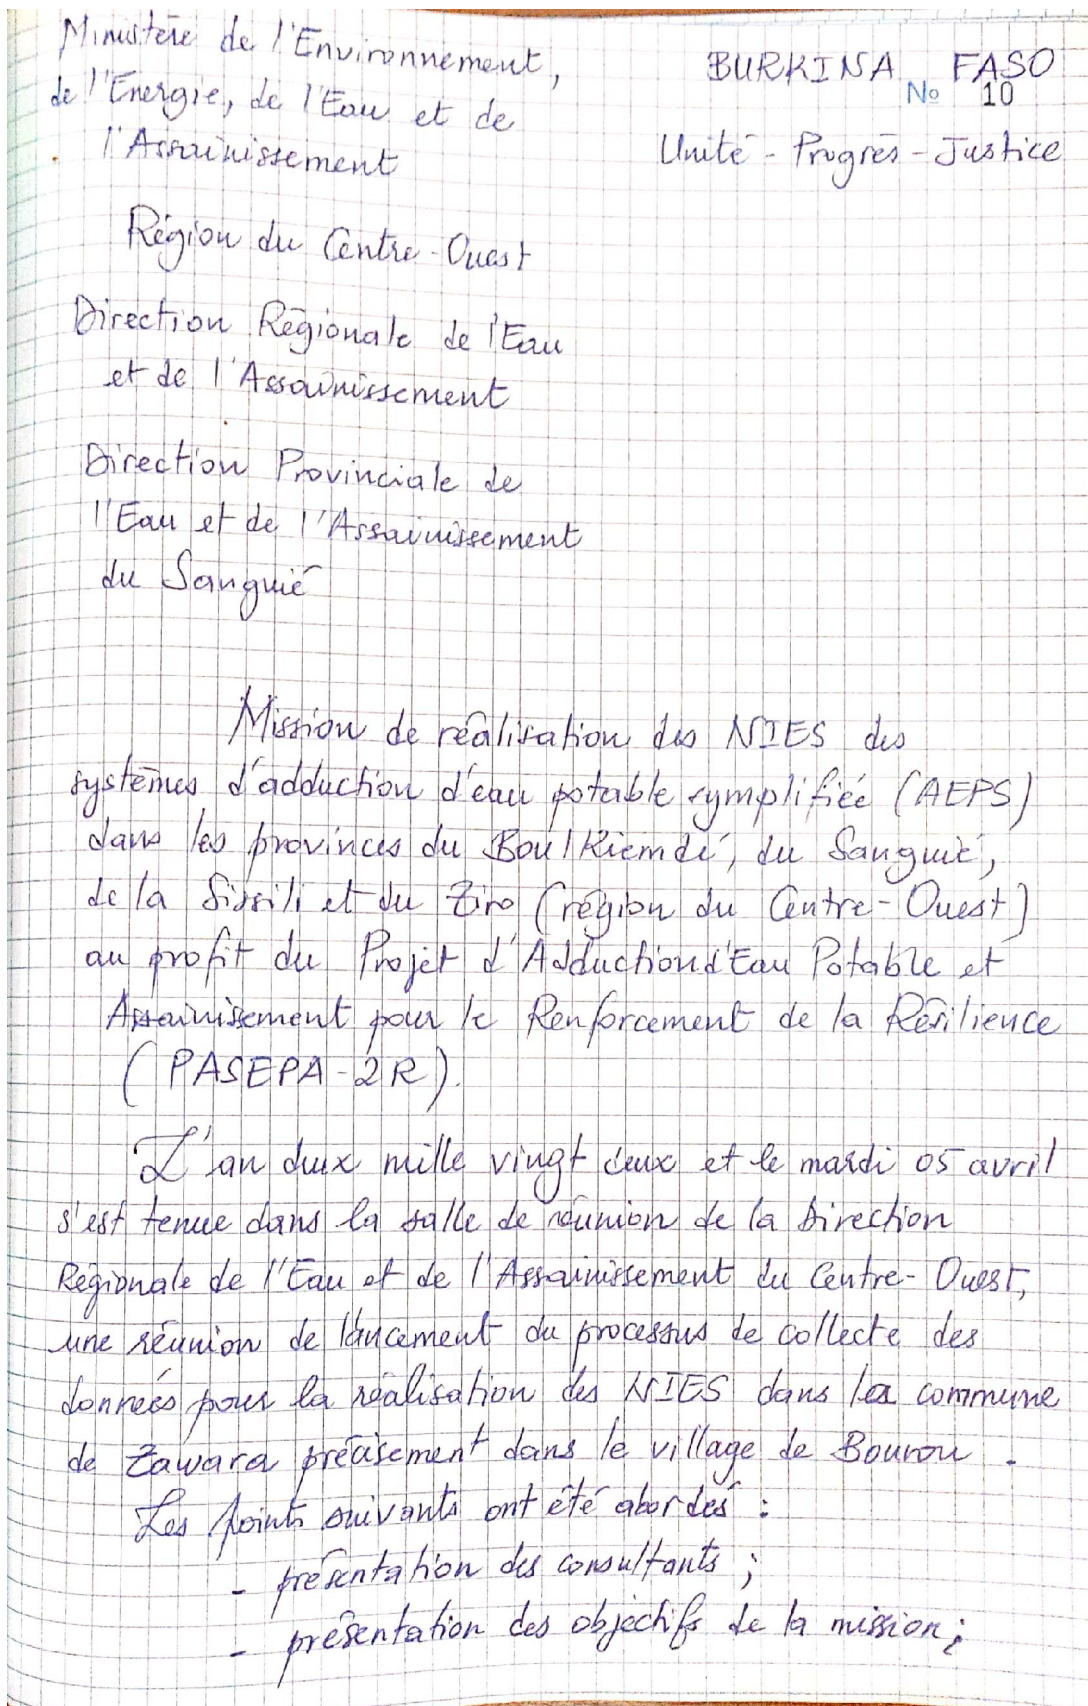 Ministère de l'Environnement,
de l'Energie, de l'Eau et de
l'Assainissement
BURKINA FASO
No 10
Unité - Progrès - Justice
Région du Centre-Ouest
Direction Régionale de l'Eau
et de l'Assainissement
Direction Provinciale de
l'Eau et de l'Assainissement
du Sanguié
Mission de réalisation des NIES des
systèmes d'adduction d'eau potable symplifiée (AEPS)
dans les provinces du Boulkiemdé, du Sanguié,
de la Sissili et du Ziro (région du Centre-Ouest)
au profit du Projet d'Adduction d'Eau Potable et
Assainissement pour le Renforcement de la Résilience
(PASEPA-2R).
L'an deux mille vingt deux et le mardi 05 avril
s'est tenue dans la salle de réunion de la Direction
Régionale de l'Eau et de l'Assainissement du Centre-Ouest,
une réunion de lancement du processus de collecte des
données pour la réalisation des NIES dans la commune
de Zawara précisement dans le village de Bourou.
Les points suivants ont été abordés :
- présentation des consultants ;
- présentation des objectifs de la mission ;